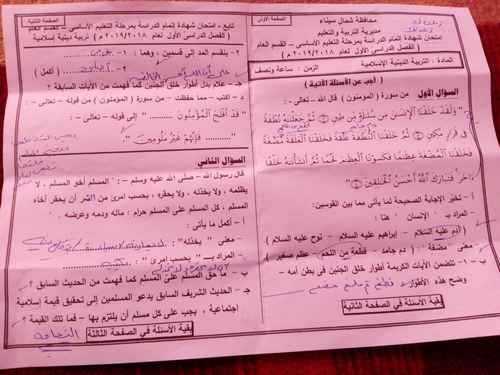 الصفحة الأولى
محافظة شمال سيناء
مديرية التربية والتعليم
امتحان شهادة إتمام الدراسة بمرحلة التعليم الأساسى - القسم العام
( الفصل الدراسى الأول لعام ٢٠١٨/٢٠١٩ م )
المادة : التربية الدينية الإسلامية الزمن : ساعة ونصف
( أجب عن الأسئلة الآتية )
السؤال الأول من سورة ( المؤمنون ) قال الله تعالى :
" وَلَقَدْ خَلَقْنَا الْإِنسَانَ مِن سُلَالَةٍ مِّن طِينٍ ثُمَّ جَعَلْنَاهُ نُطْفَةً
فِي قَرَارٍ مَّكِينٍ ثُمَّ خَلَقْنَا النُّطْفَةَ عَلَقَةً
فَخَلَقْنَا الْمُضْغَةَ عِظَامًا فَكَسَوْنَا الْعِظَامَ لَحْمًا ثُمَّ أَنشَأْنَاهُ خَلْقًا
آخَرَ فَتَبَارَكَ اللَّهُ أَحْسَنُ الْخَالِقِينَ
أ - تخير الإجابة الصحيحة لما يأتى مما بين القوسين:
- المراد بـ " الإنسان " هنا :
( آدم عليه السلام - إبراهيم عليه السلام - نوح عليه السلام )
- معنى " مضغة " : ( دم جامد - قطعة من اللحم - عظم صغير )
ب - ١ - تتضمن الآيات الكريمة أطوار خلق الجنين فى بطن أمه -
وضح هذه الأطوار
بقية الأسئلة فى الصفحة الثانية
الصفحة الثانية
تابع - امتحان شهادة إتمام الدراسة بمرحلة التعليم الأساسى - القسم العام
( الفصل الدراسى الأول لعام ٢٠١٨/٢٠١٩ م ) تربية دينية إسلامية
٢ - ينقسم المد إلى قسمين ، وهما : ١-
٢- ( أكمل )
جـ - علام يدل أطوار خلق الجنين كما فهمت من الآيات السابقة ؟
د - اكتب مما حفظت من سورة ( المؤمنون ) من قوله - تعالى - :
" قَدْ أَفْلَحَ الْمُؤْمِنُونَ إلى قوله - تعالى - :
فَإِنَّهُمْ غَيْرُ مَلُومِينَ "
السؤال الثانى
قال رسول الله - صلى الله عليه وسلم - : " المسلم أخو المسلم ، لا
يظلمه ، ولا يخذله ، ولا يحقره ، بحسب امرئ من الشر أن يحقر أخاه
المسلم ، كل المسلم على المسلم حرام : ماله ودمه وعرضه . "
أ - أكمل ما يأتى :
- معنى " يخذله " :
- المراد بـ " بحسب امرئ " :
ب - ما حق المسلم على المسلم كما فهمت من الحديث السابق ؟
جـ - الحديث الشريف السابق يدعو المسلمين إلى تحقيق قيمة إسلامية
اجتماعية ، يجب على كل مسلم أن يلتزم بها - فما تلك القيمة ؟
بقية الأسئلة فى الصفحة الثالثة